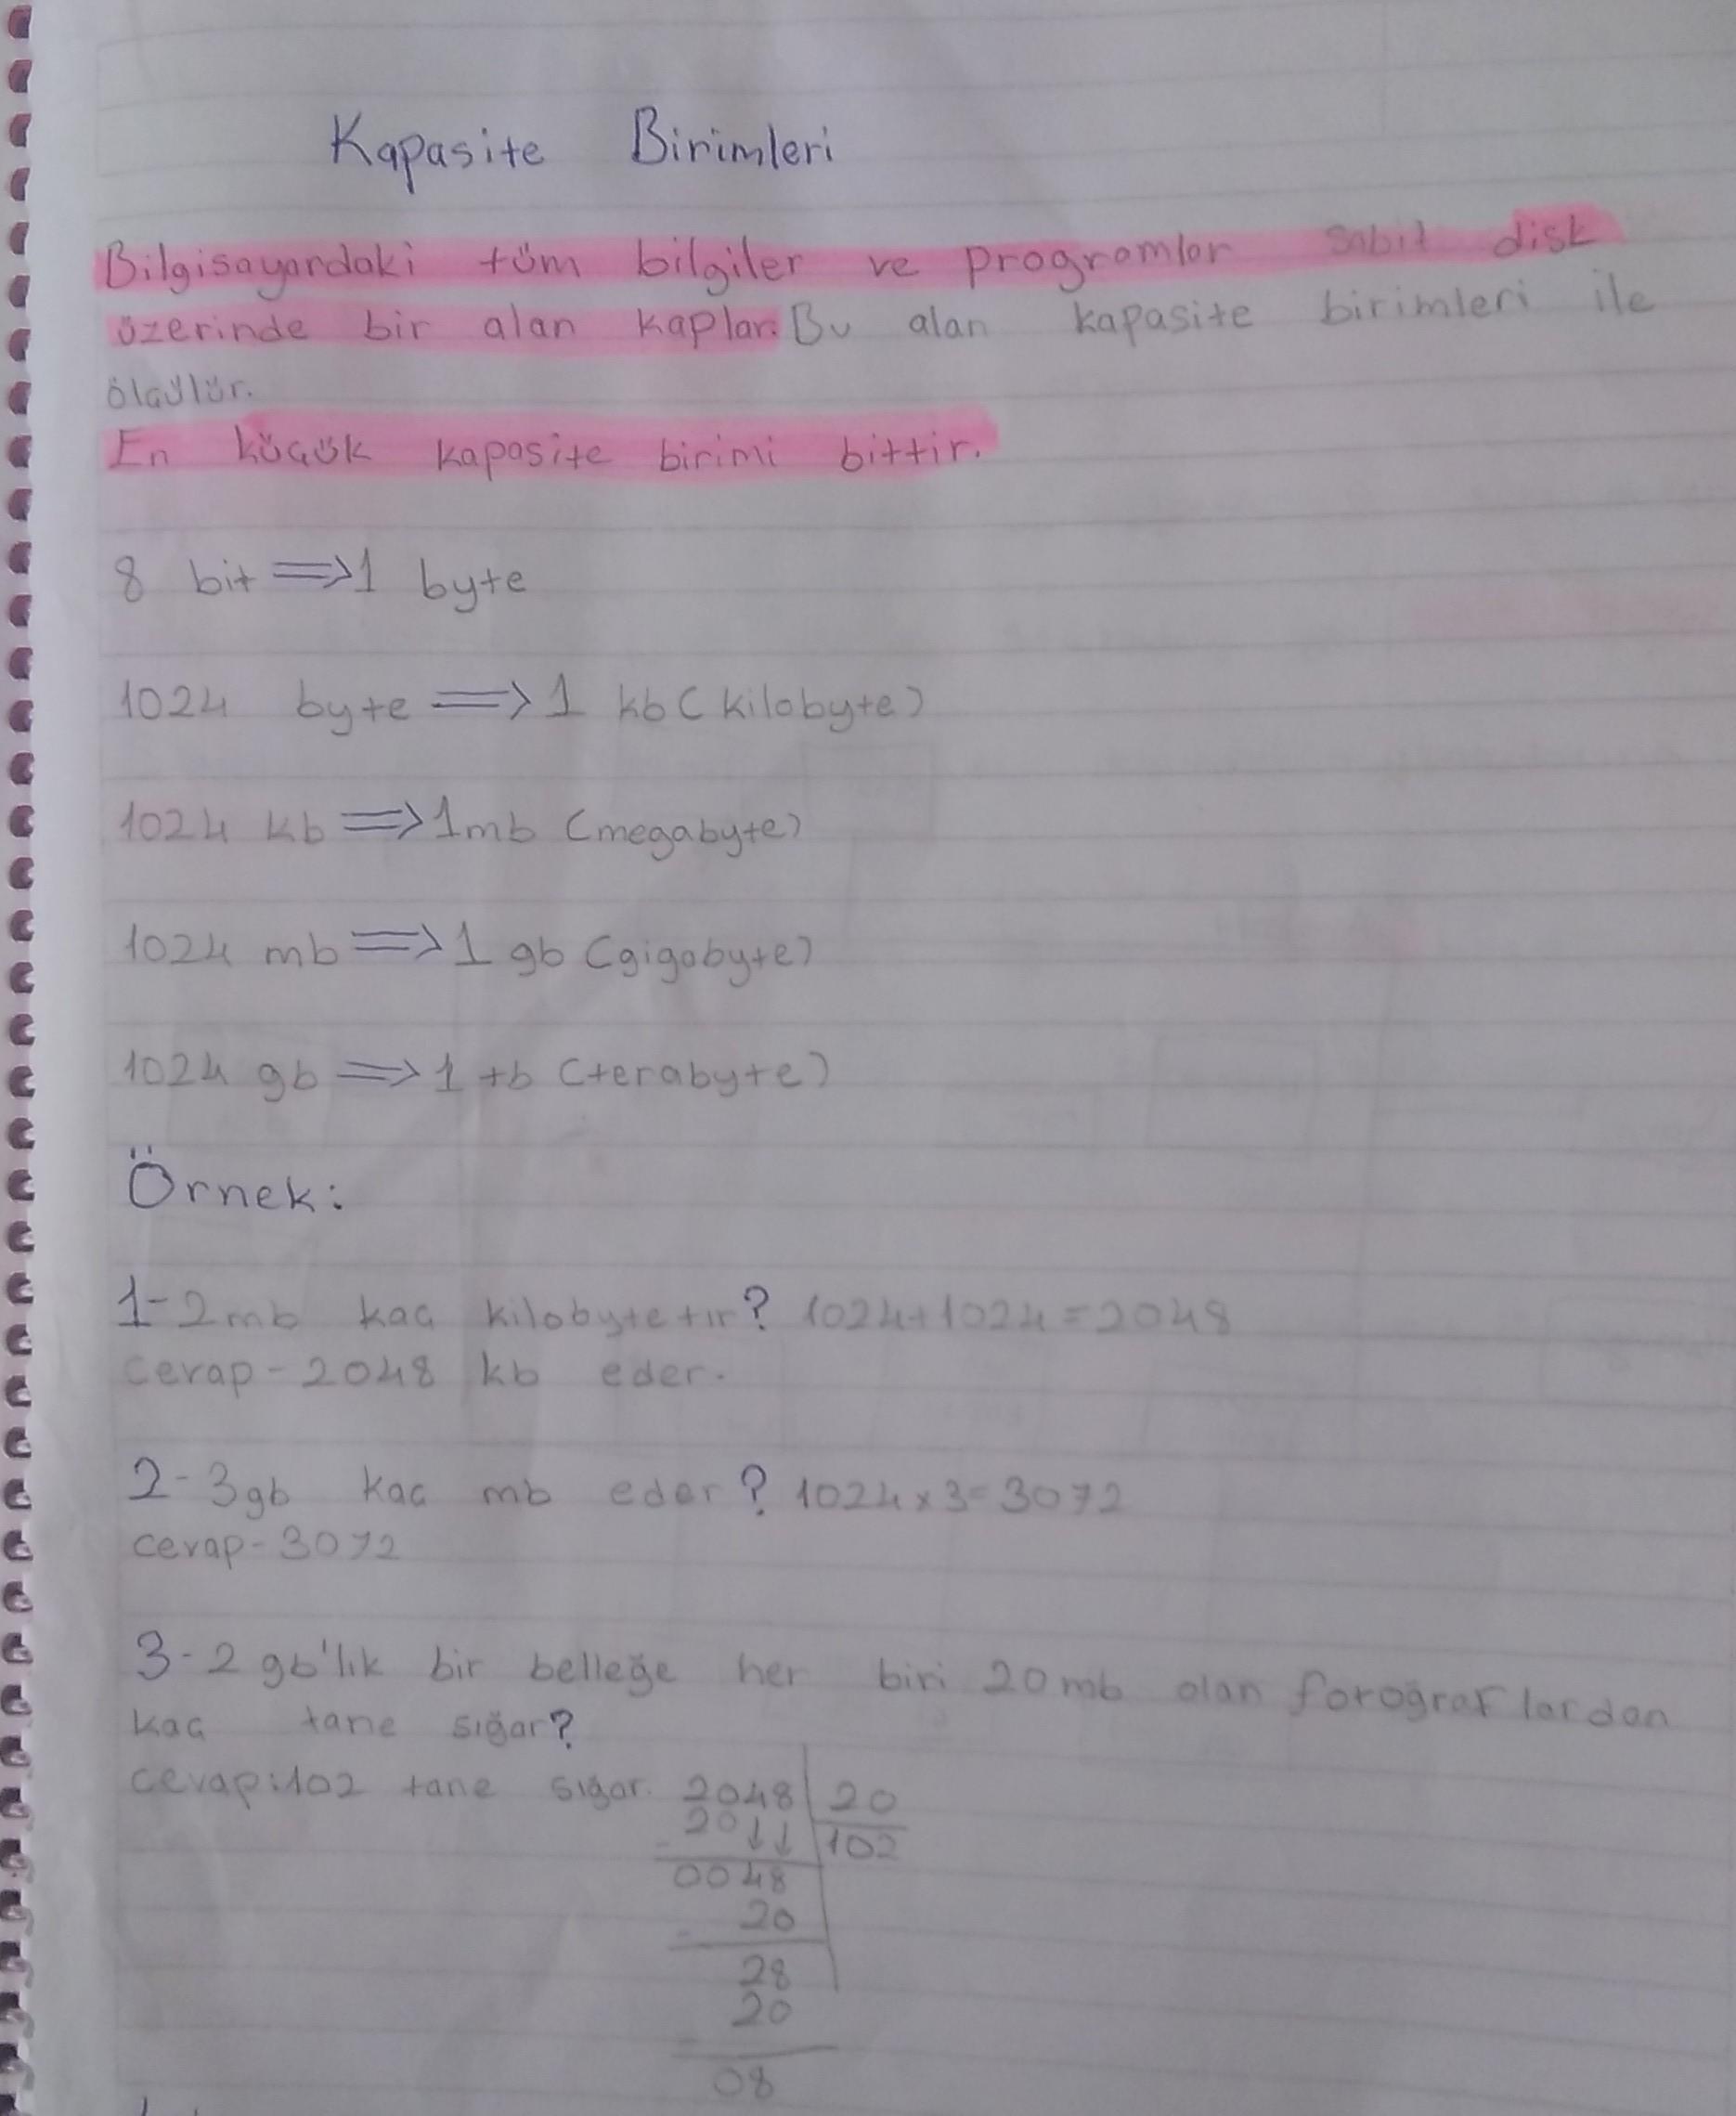 Kapasite Birimleri
Bilgisayardaki tüm bilgiler ve programlar sabit disk
üzerinde bir alan kaplar. Bu alan kapasite birimleri ile
ölçülür.
En küçük kapasite birimi bittir.
8 bit ⇒ 1 byte
1024 byte ⇒ 1 kb (kilobyte)
1024 kb ⇒ 1mb (megabyte)
1024 mb ⇒ 1 gb (gigabyte)
1024 gb ⇒ 1 tb (terabyte)
Örnek:
1-2mb kaç kilobytetır? 1024+1024=2048
cevap-2048 kb eder.
2-3gb kaç mb eder? 1024x3=3072
cevap-3072
3-2 gb'lık bir belleğe her biri 20mb olan fotoğraflardan
kaç tane sığar?
cevap:102 tane sığar. 2048 20
- 20↓↓ 102
0048
- 20
28
- 20
08